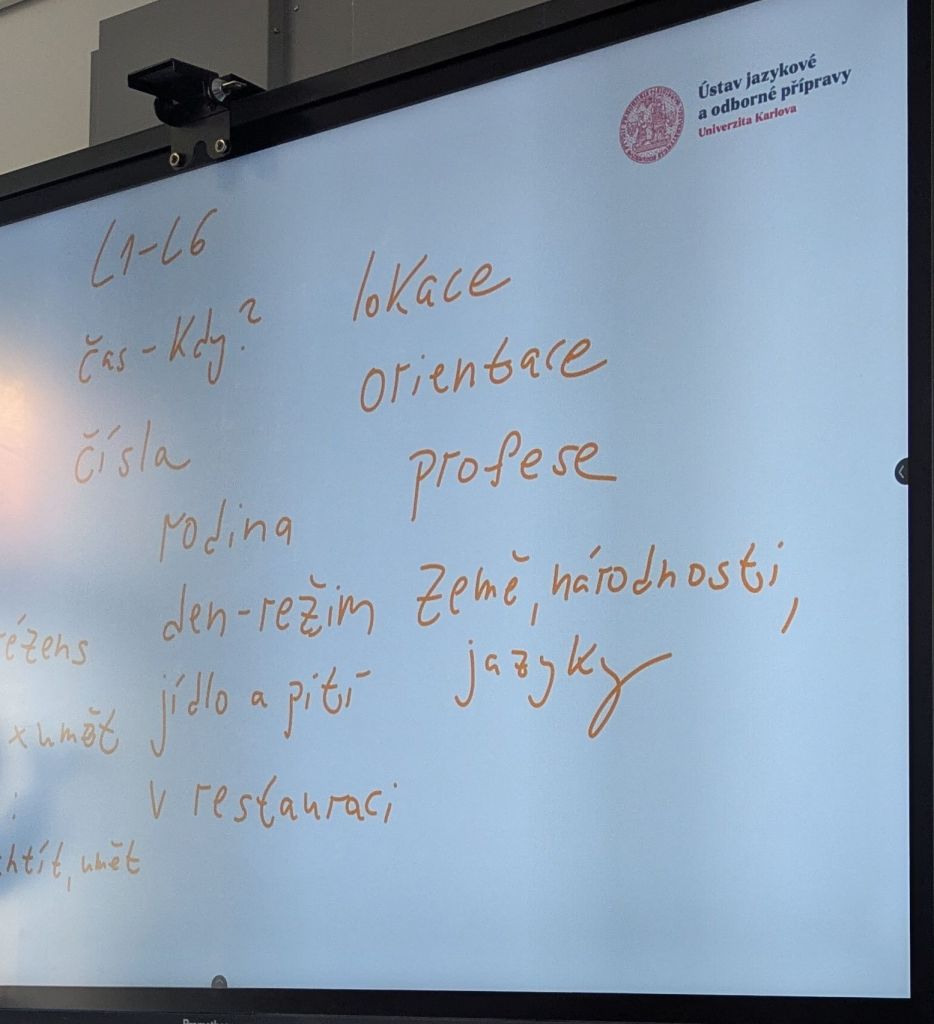 Ústav jazykové
a odborné přípravy
Univerzita Karlova
L1-L6
čas - Kdy?
čísla
rodina
den-režim
jídlo a pití
v restauraci
lokace
orientace
profese
Země, národnosti,
jazyky
ézens
x umět
htít, umět